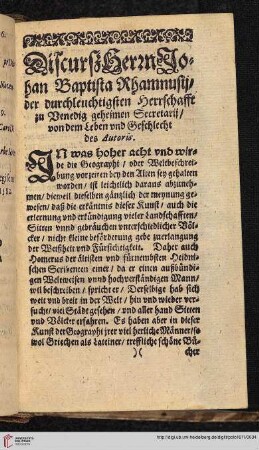 Discurß Herrn Jo-
han Baptista Rhamnusij/
der durchleuchtigsten Herrschafft
zu Venedig geheimen Secretarij/
von dem Leben vnd Geschlecht
des Autoris.
IN was hoher acht vnd wir-
de die Geography / oder Weltbeschrei-
bung vorzeiten bey den Alten sey gehalten
worden / ist leichtlich daraus abzunem-
men / dieweil dieselben gäntzlich der meynung ge-
wesen / daß die erkäntnis dieser Kunst / auch die
erlernung vnd erkündigung vieler Landschafften/
Sitten vnnd gebräuchen vnterschiedlicher Völ-
cker / nicht kleine beförderung gebe zuerlangung
der Weißheit vnd Fürsichtigkeit. Daher auch
Homerus der ältisten vnd fürnembsten Heidni-
schen Scribenten einer / da er einen außbündi-
gen Weltweisen vnnd hochverständigen Mann/
wil beschreiben / spricht er / Derselbige hab sich
weit vnd breit in der Welt / hin vnd wieder ver-
sucht / viel Städ gesehen / vnd aller hand Sitten
vnd Völcker erfahren. Es haben aber in dieser
Kunst der Geographi jrer viel herliche Männer/so-
wol Griechen als Lateiner / treffliche schöne Bü-
)( cher
http://digi.ub.uni-heidelberg.de/diglit/